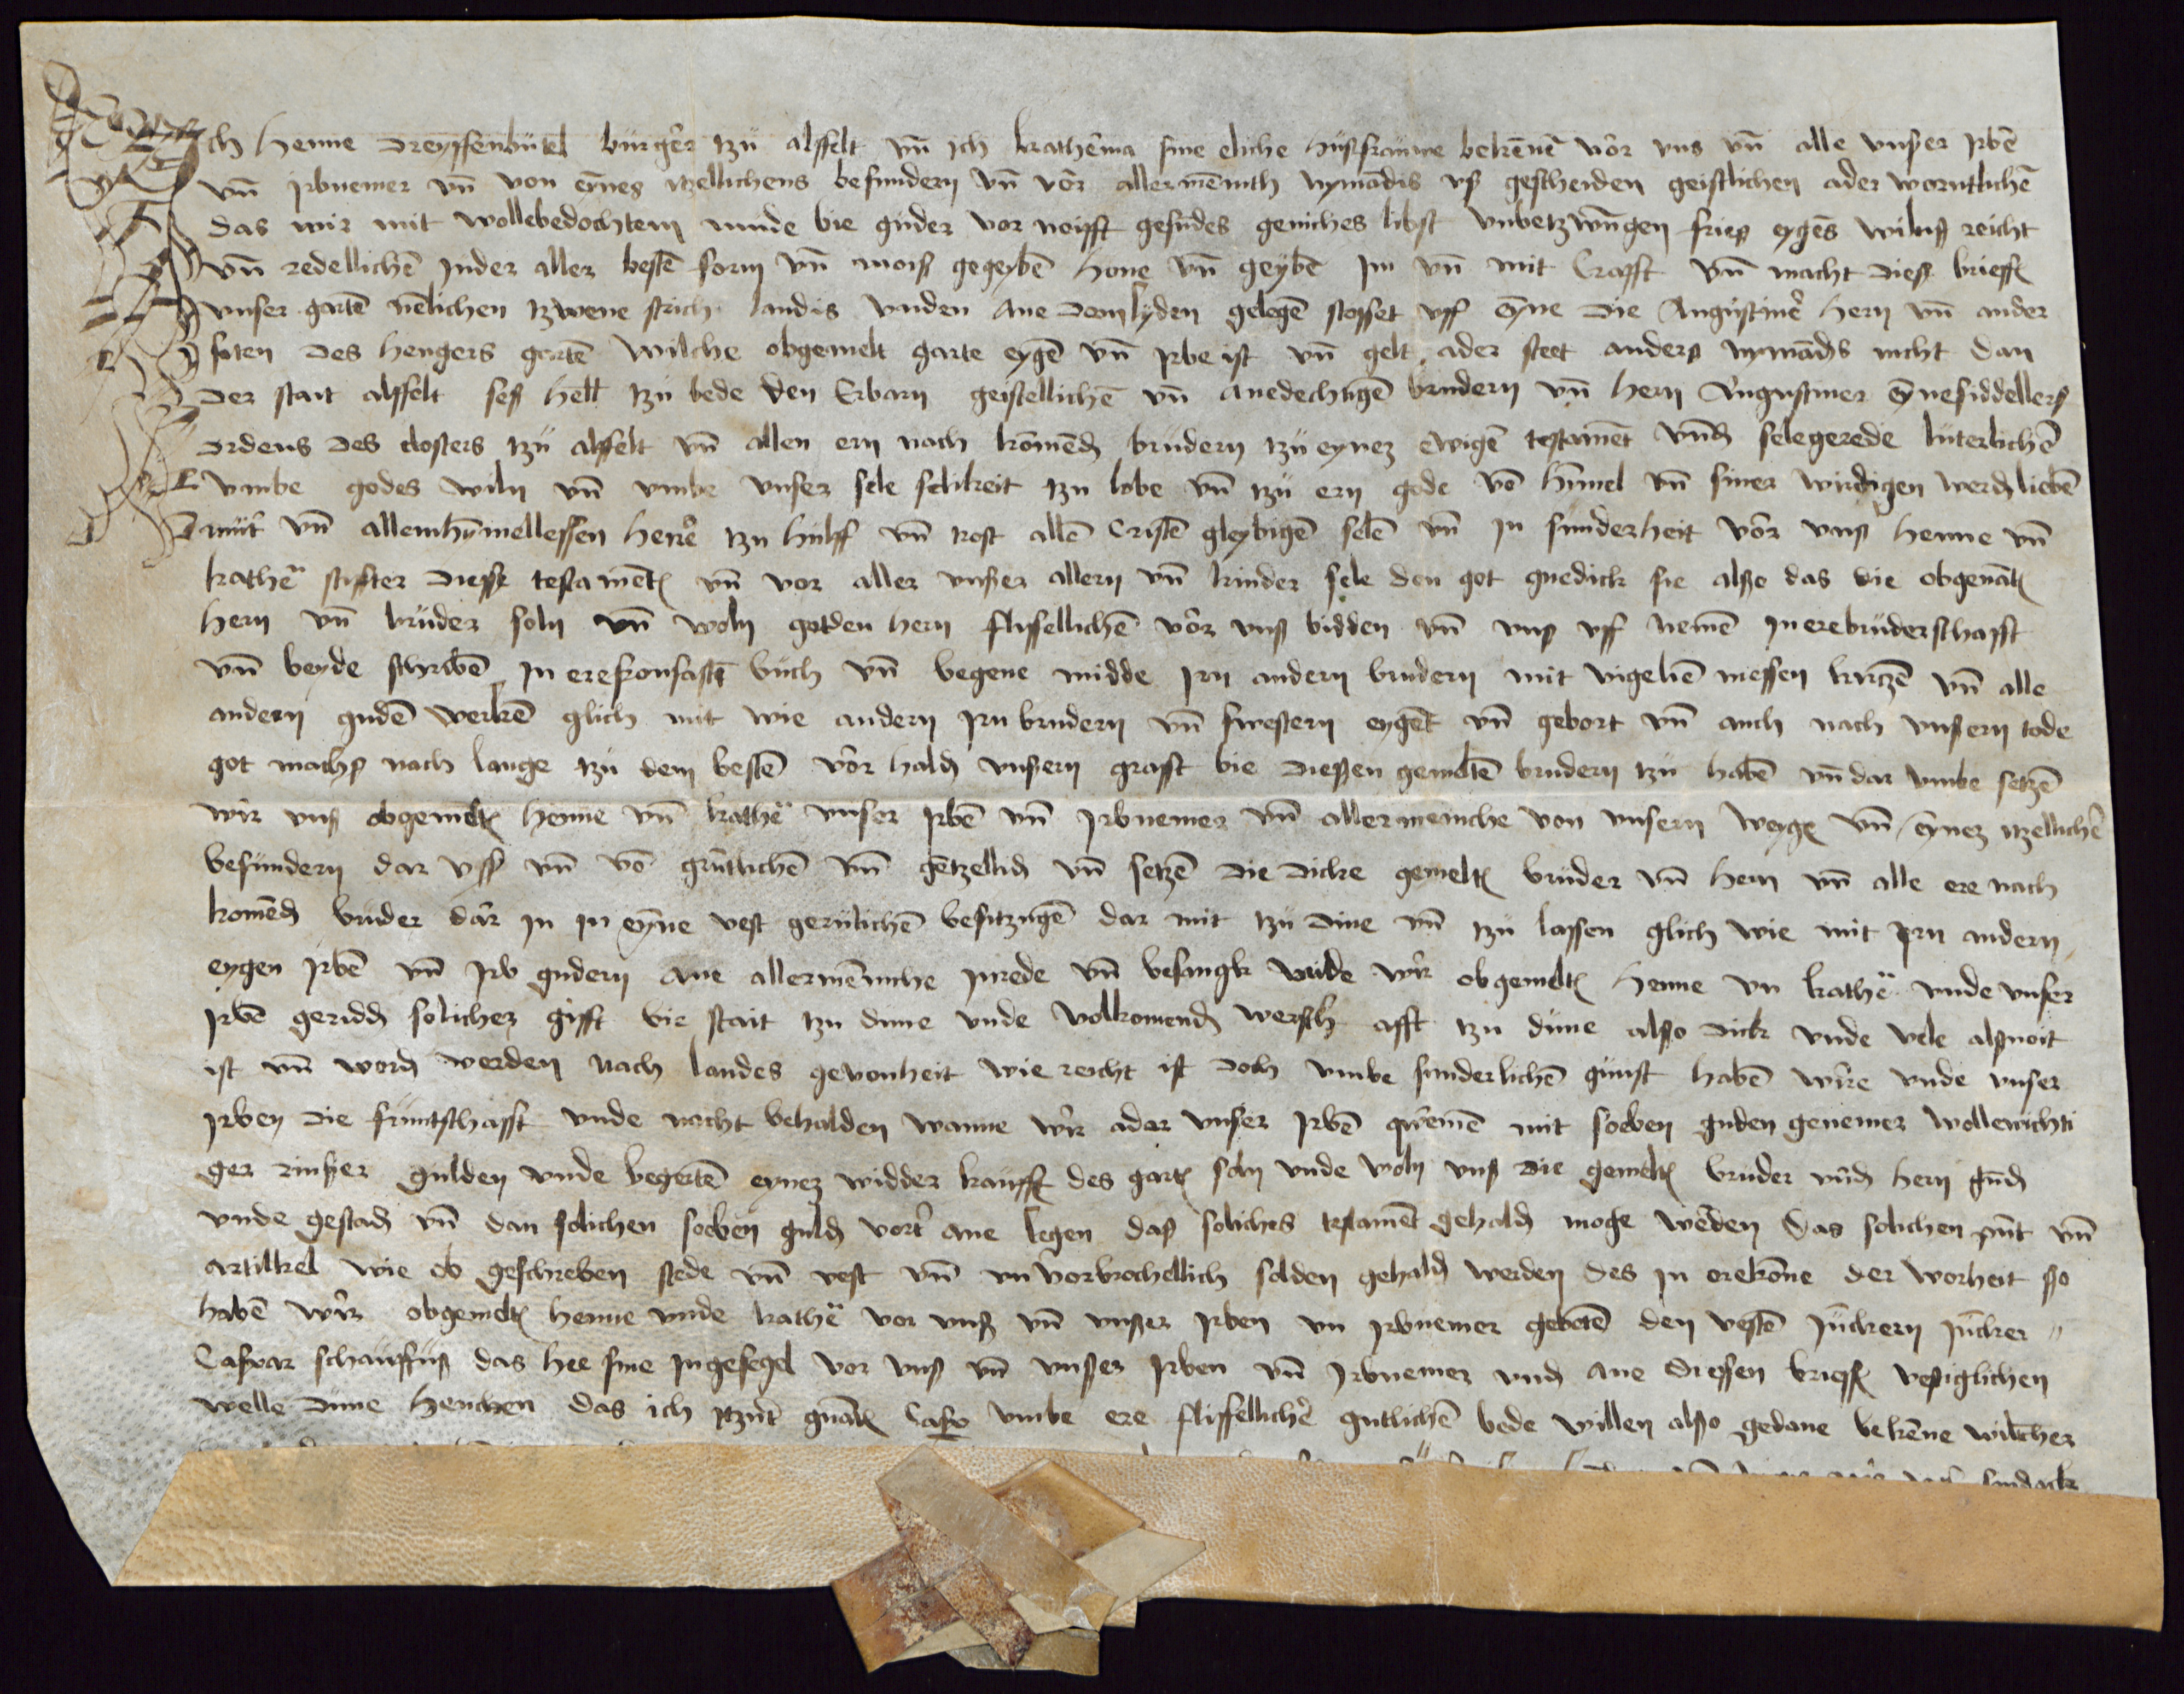 Ich Henne Dreyssenbutel burger tzu alsfelt vn̄ ich kathe͞ina sine eliche husfrauwe beken̄ē vor vns vn̄ alle vnßer Jrbē
vn̄ Jrbnemer vn̄ von eynes itzellichens besundern vn̄ vor allermēnnth nymādis vß gescheiden geistlichen ader werntlichē
das wir mit wollebedochtem mude bie guder vor noifft gesūdes geniches libst vnbetzwūngen fries eygēs wilns reicht
vn̄ redellichē Jnder aller bestē form vn̄ moiß gegeybē Hone vn̄ geybē Jm vn̄ mit Crafft vn̄ macht dieß brieffs
vnser gartē nēlichen tzwene strich landis vnden ane dem lyden gelegē stosset vff eyne die Augustiner hern vn̄ ander
siten des Hengers gartē wilche obgemelt garte eygē vn̄ Jrbe ist vn̄ gelt ader steet anders nymāds nicht dan
der stait alsfelt seß hellr tzu bede den Erbarn geistellichē vn̄ anedechtigē brudern vn̄ hern Augustiner eynesiddellers
Ordens des closters tzu alsfelt vn̄ allen ern nach kōmend brudern tzu eynez ewigē testamēt vnd selegerede luterlichē
vmbe godes wiln vn̄ vmbe vnser sele selikeit tzu lobe vn̄ tzu ern gode vō hīmel vn̄ siner wirdigen werd liebē
muter vn̄ allem hymellessen here tzu hulff vn̄ trost allē Cristē gleybigē selē vn̄ Jn sunderheit vor vnß Henne vn̄
kathē stiffter dieß testamēts vn̄ vor aller vnser allern vn̄ kinder sele den got gnedick sie alßo das die obgenāt
hern vn̄ bruder soln vn̄ woln gotden hern flissellichē vor vnß bidden vn̄ vnß vff nemē Jn erebruderschafft
vn̄ beyde schribē Jn erefronfastē buch vn̄ begene midde Jrn andern brudern mit vigeliē messen kertzē vn̄ alle
andern gudē werkē glich mit wie andern Jrn brudern vn̄ swestern eygēt vn̄ gebort vn̄ auch nach vnßern tode
got machs nach lange tzu dem bestē vor hald vnßern grafft bie dießen gemeltē brudern tzu habē vn̄ dar vmbe setzē
wir vnß obgemelt Henne vn̄ kathē vnser Jrbē vn̄ Jrbnemer vn̄ allermenniche von vnsern weyge vn̄ eynez itzellichē
besundern dar vß vn̄ vō grūtlichē vn̄ gētzellich vn̄ setzē die dicke gemelt bruder vn̄ hern vn̄ alle ere nach
komēd bruder dar Jn Jn eyne vest gerulichē besitzūgē dar mit tzu dune vn̄ tzu lassen glich wie mit Jrn andern
eygen Jrbē vn̄ Jrb gudern ane allermēnniche Jnrede vn̄ besangk vnde wir obgemelt Henne vn kathē vnde vnser
Jrbē geridd solicher gifft bie stait tzu dune vnde volkomend wersch afft tzu dune alßo dick vnde vele alßnoit
ist vn̄ word werden nach landes gewonheit wie reicht ist doch vmbe sunderlichē gunst habē wire vnde vnser
Jrben die fruntschafft vnde macht behalden wanne wir ader vnser Jrbē qwemē mit soeben guden genemer wollewichti
ger rinßer gulden vnde begertē eynez widder kauffs des gart soln vnde woln vnß die gemelt bruder vnd hern gūd
vnde gestad vn̄ dan solichen soeben guld vort ane legen das soliches testamēt gehald moge werden das solichen pūt vn̄
artikkel wie ob geschreben stede vn̄ vest vn̄ vnvorbrochellich solden gehald werden des Jn orekōne der worheit sso
habē wir obgemelt Henne vnde kathē vor vnß vn̄ vnßer Jrben vn Jrbnemer gebetē den vestē Jūckern Jūcker
Caspar schaufuß das hee sine Jngesegel vor vnß vn̄ vnßer Jrben vn̄ Jrbnemer vnd ane diessen brieff vestiglichen
welle dune henchen das ich itzūt gnāt Casp vmbe ere flissellichē gutlichē bede willen alßo gedane bekēne wilcher